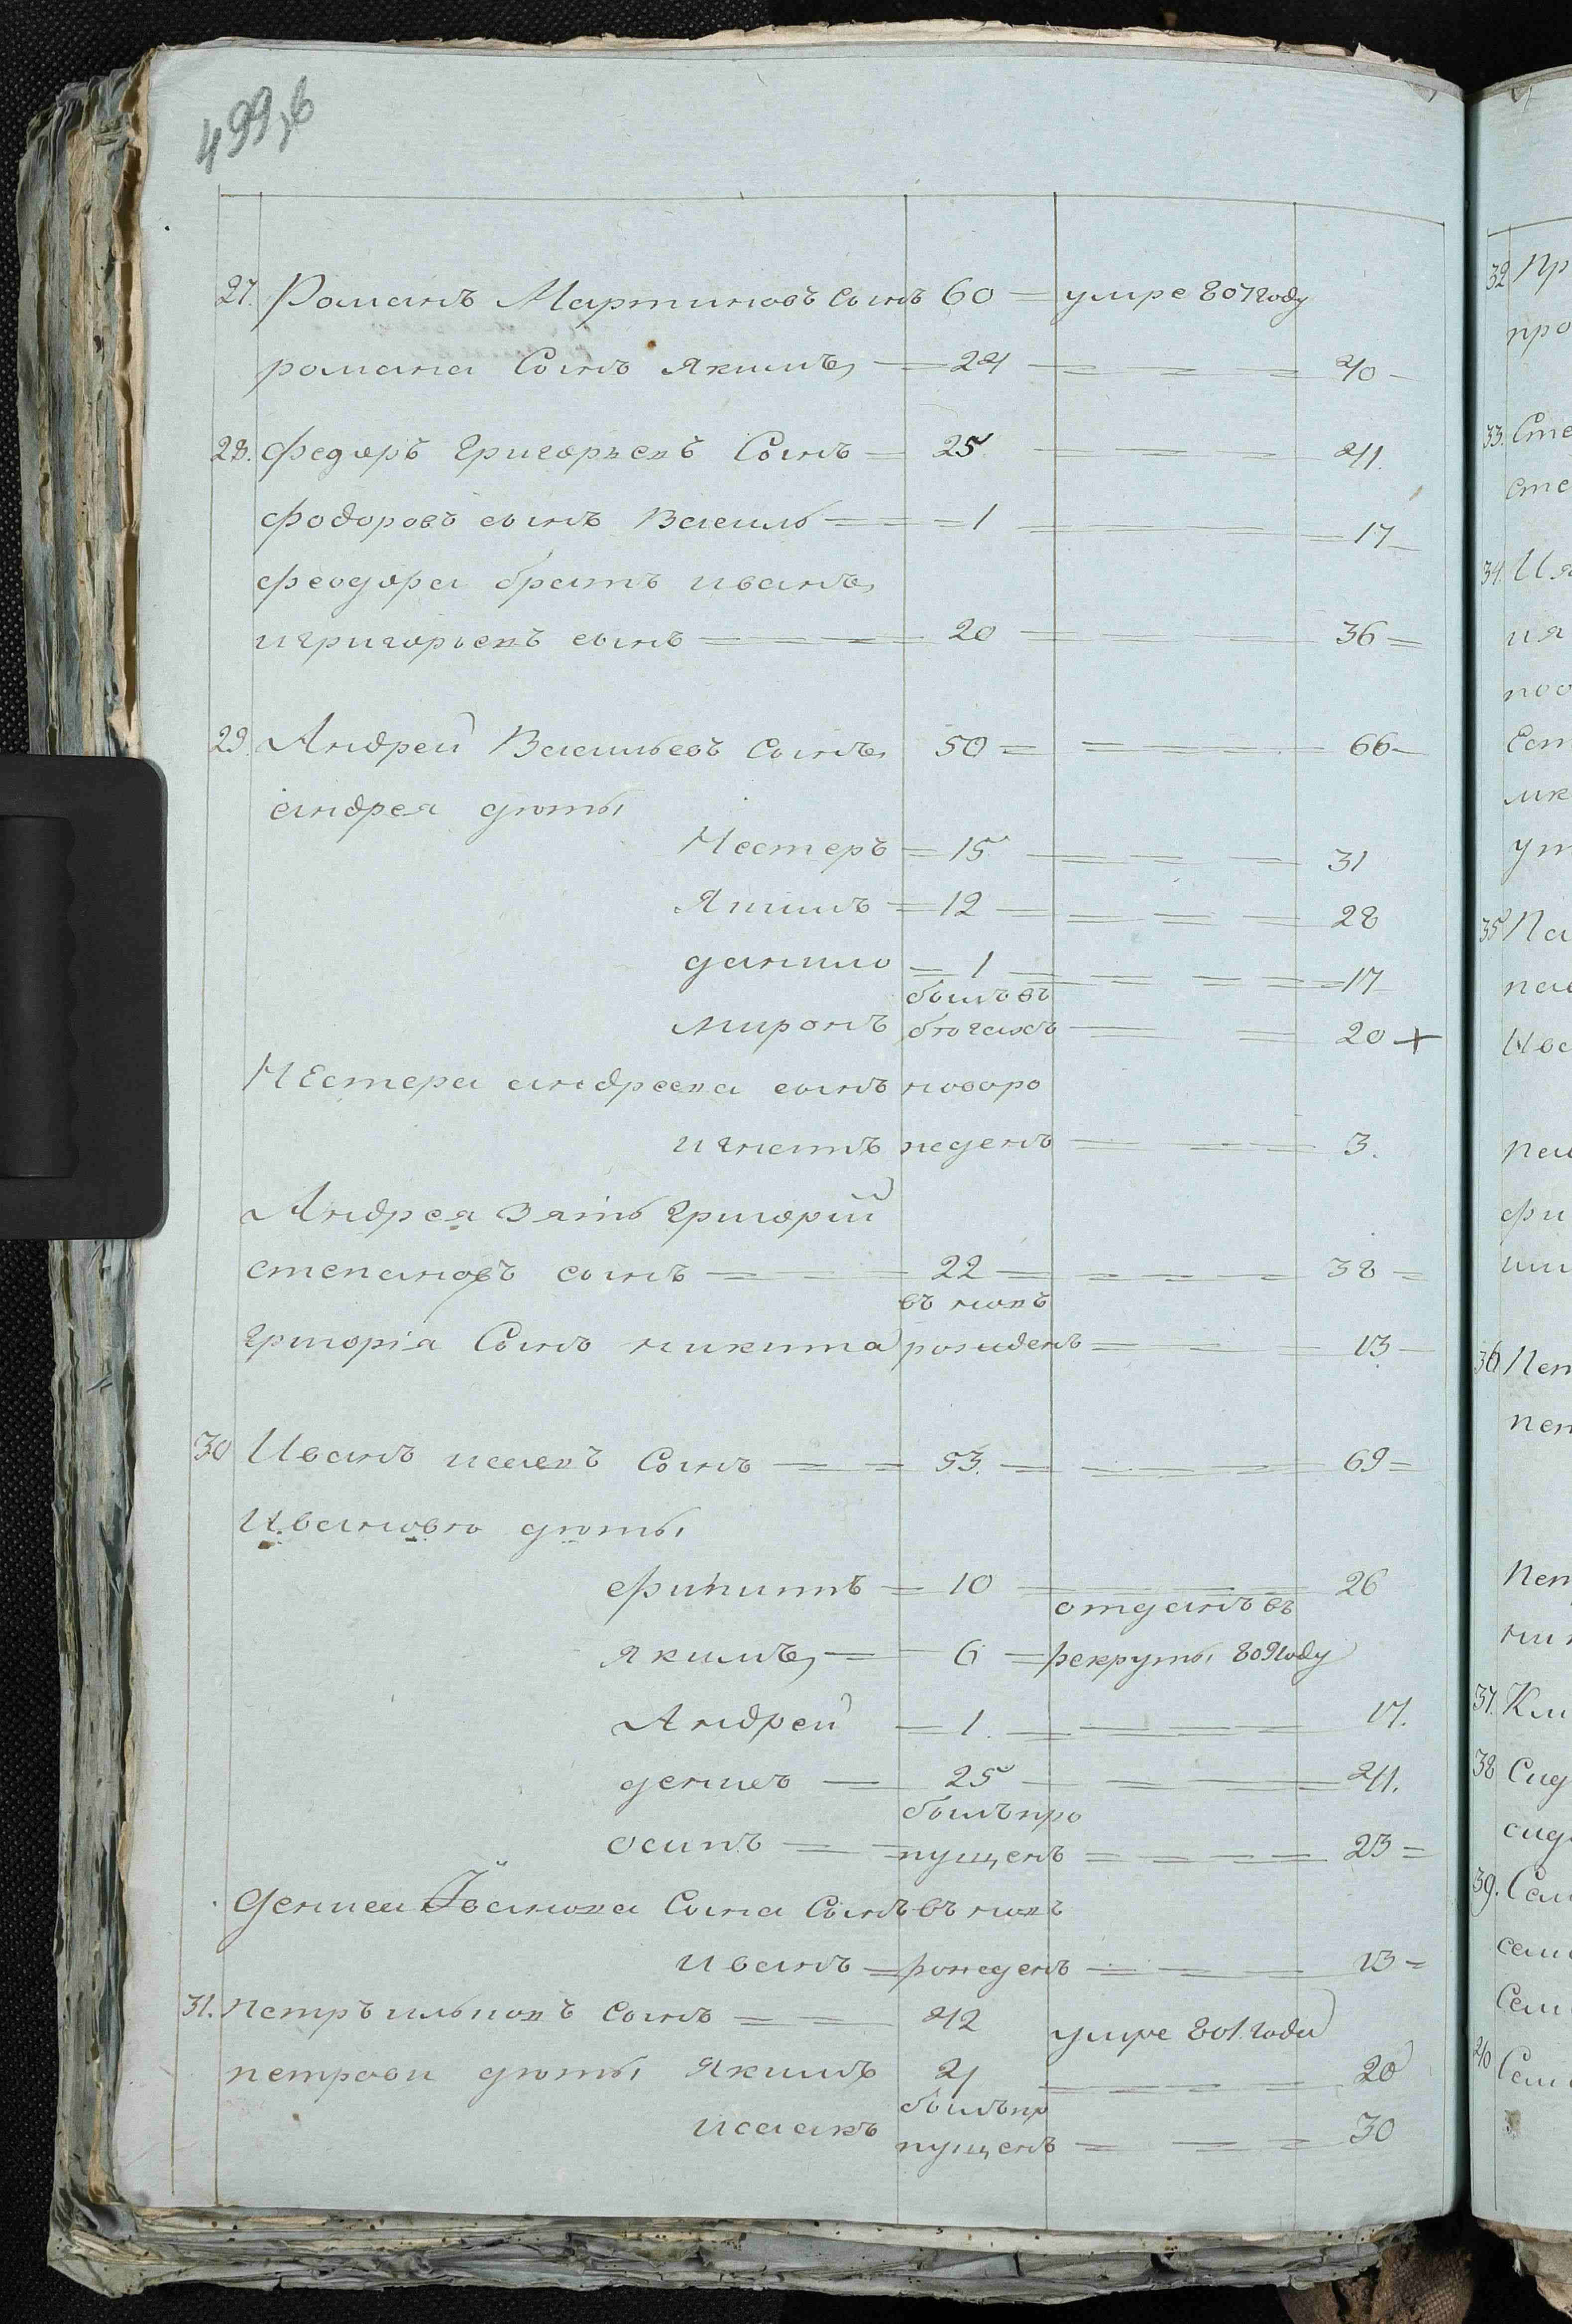 499,б
27. Романъ Мартиновъ сынъ 60 умре 807 году
романа Сынъ якимъ 24 40
28. федоръ Григорьевъ Сынъ 25 41.
фодоровъ сынъ Василь 1 17
феодора братъ иванъ
игригорьевъ сынъ 20 36
29. Андрей Васильевъ Сынъ 50 66
андрея дѣты
Нестеръ 15 31
Якимъ 12 28
данило 1 17
былъ въ
миронъ бѣгахъ 20 +
Нестера андреева сынъ новоро
игнатъ жденъ 3.
Андрея зять Григорій
степановъ сынъ 22 38
въ новъ
Григорія Сынъ никита рожденъ 13
30 Иванъ исаевъ Сынъ 53. 69
Ивановы дѣты
филипъ 10 26
отданъ въ
якимъ 6 рекруты 809 году
Андрей 1. 17.
денисъ 25 41.
былъ про
осипъ пущенъ 23
дениса Иванова Сына Сынъ въ новъ
иванъ рожденъ 13
31. петръ ильиновъ Сынъ 42 умре 801. года
петрови дѣты якимъ 4 20
былъ пр
исаакъ пущенъ 30
32 Пр
про
33. Сте
сте
34. Ия
ия
поо
Ест
мк
ут
35 Па
пав
Ива
пав
фи
ши
36 Пет
пет
Пет
ни
37. Кли
38 Сид
сид
39. Сам
сам
Сам
40 Сам